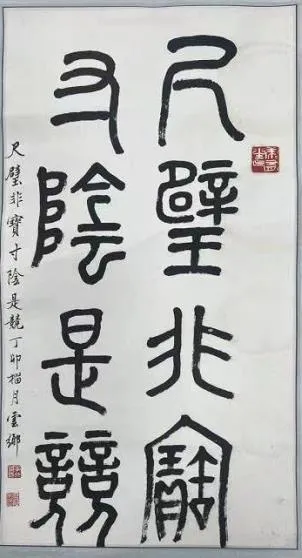 尺璧非寶
寸陰是競
尺璧非寶寸陰是競丁卯榴月雲鄉